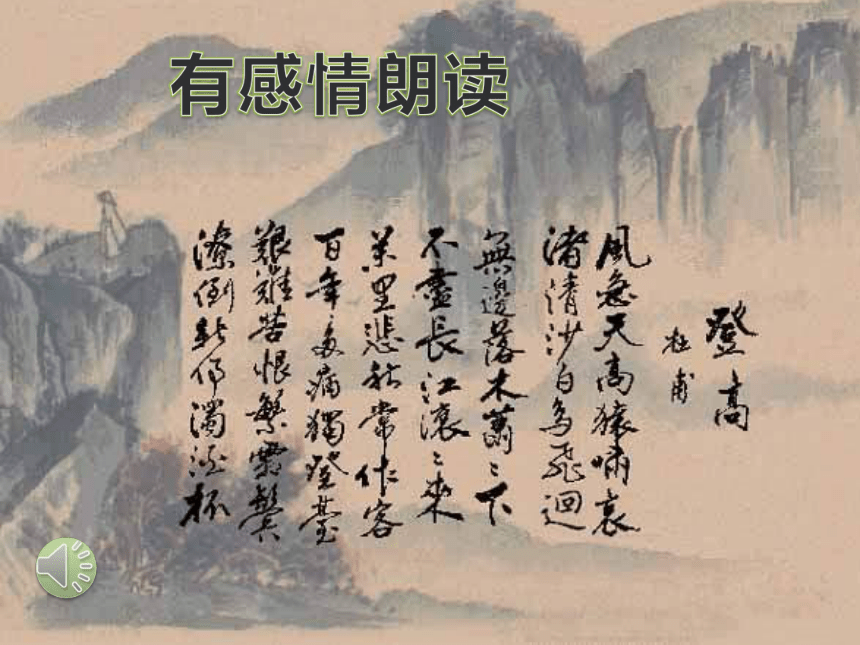 有感情朗读
登高
杜甫
風急天高猿嘯哀
渚清沙白鳥飛迴
無邊落木蕭〻下
不盡長江滾〻來
萬里悲秋常作客
百年多病獨登臺
艱難苦恨繁霜鬢
潦倒新停濁酒杯